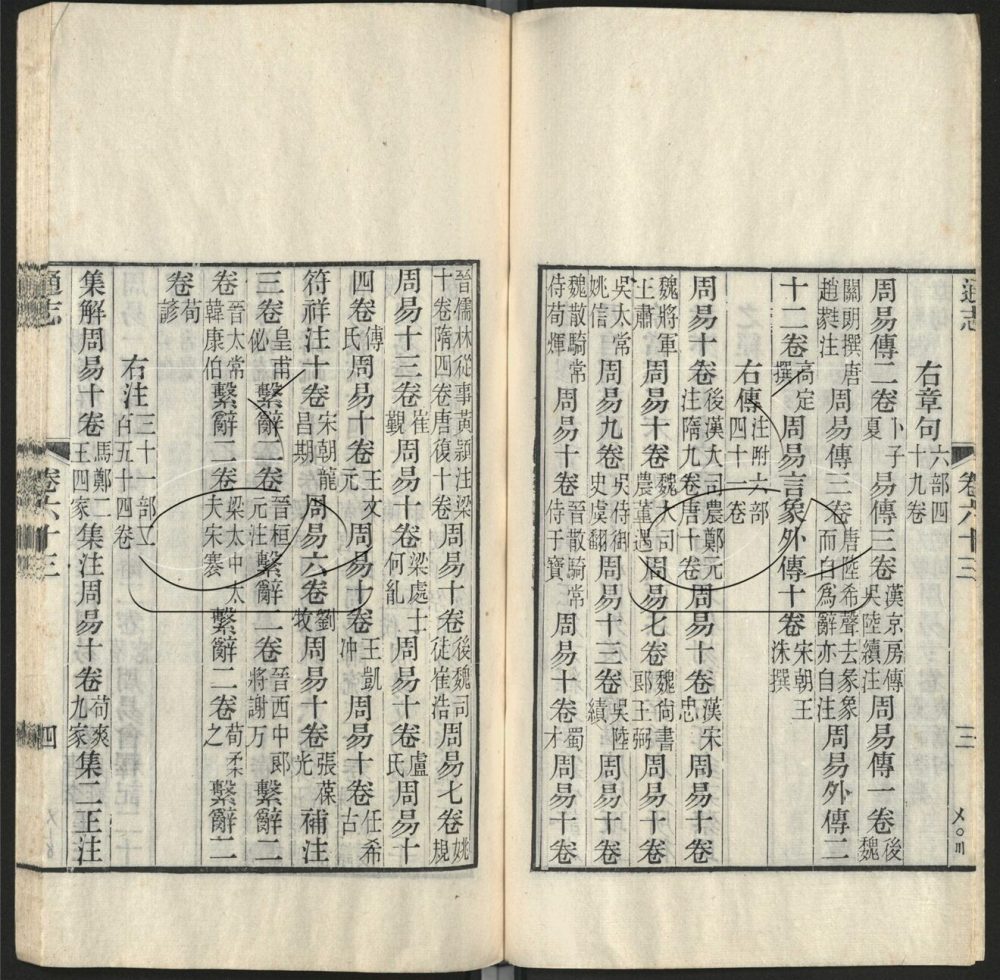 通志 卷六十三 三 〤〇川
右章句六部四十九卷
周易傳二卷卜子夏易傳三卷漢京房傳吳陸績注周易傳一卷後魏
關朗撰唐趙蕤注周易傳三卷唐陸希聲去彖象而自為辭亦自注周易外傳二
十二卷高定撰周易言象外傳十卷宋朝王洙撰
右傳注附六部四十卷
周易十卷後漢大司農鄭元注隋九卷唐十卷周易十卷漢宋忠周易十卷
魏將軍王肅周易十卷魏大司農董遇周易七卷魏尚書郎王弼周易十卷
吳太常姚信周易九卷吳侍御史虞翻周易十三卷吳陸績周易十卷
魏散騎常侍荀煇周易十卷晉散騎常侍干寶周易十卷蜀才周易十卷
晉儒林從事黃穎注梁十卷隋四卷唐復十卷周易十卷後魏司徒崔浩周易七卷姚規
周易十三卷崔覲周易十卷梁處士何胤周易十卷盧氏周易十
四卷傅氏周易十卷王又元周易十卷王凱沖周易十卷任希古
符祥注十卷宋朝龍昌期周易六卷劉牧周易十卷張葆光補注
三卷皇甫佖繫辭二卷晉桓元注繫辭二卷晉西中郎將謝万繫辭二
卷晉太常韓康伯繫辭二卷梁太中大夫宋褰繫辭二卷荀柔之繫辭二
卷荀諺
右注三十一部二百五十四卷
集解周易十卷馬鄭二王四家集注周易十卷荀爽九家集二王注
通志 卷六十三 四